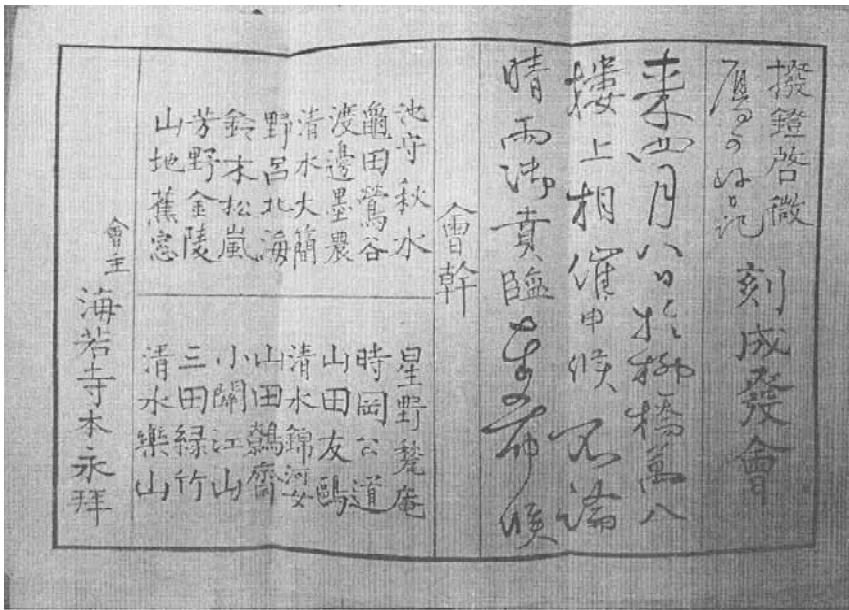 撥鐙啓微
刻成發會
来四月八日於柳橋萬八
樓上相催申候不論
晴雨御賁臨奉希候
會幹
池守秋水
龜田鶯谷
渡邊墨農
清水大簡
野呂北海
鈴木松嵐
芳野金陵
山地蕉窓
星野甃庵
時岡公道
山田友鷗
清水錦河女
山田鷯齋
小關江山
三田緑竹
清水樂山
會主
海若寺本永拜